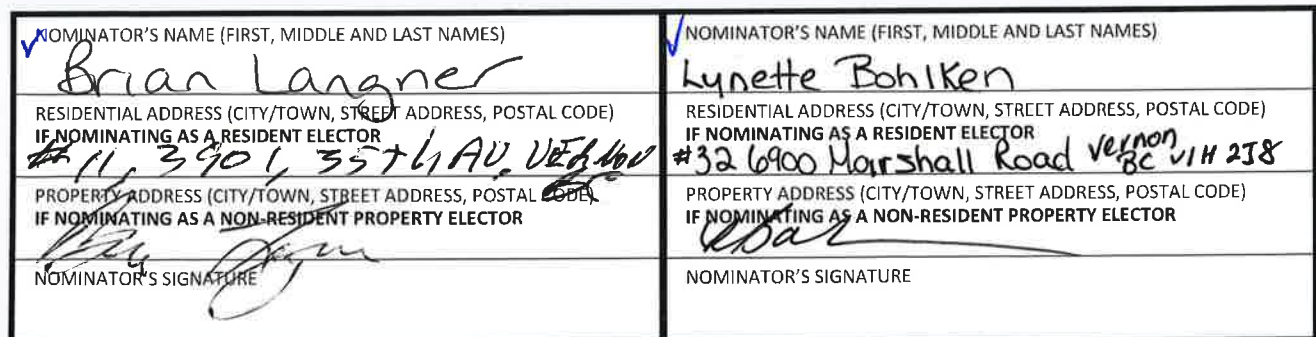 NOMINATOR'S NAME (FIRST, MIDDLE AND LAST NAMES)
Brian Langner
RESIDENTIAL ADDRESS (CITY/TOWN, STREET ADDRESS, POSTAL CODE)
IF NOMINATING AS A RESIDENT ELECTOR
#11, 3901, 35th AV. VERNON
BC
PROPERTY ADDRESS (CITY/TOWN, STREET ADDRESS, POSTAL CODE)
IF NOMINATING AS A NON-RESIDENT PROPERTY ELECTOR
NOMINATOR'S SIGNATURE
NOMINATOR'S NAME (FIRST, MIDDLE AND LAST NAMES)
Lynette Bohlken
RESIDENTIAL ADDRESS (CITY/TOWN, STREET ADDRESS, POSTAL CODE)
IF NOMINATING AS A RESIDENT ELECTOR
#32 6900 Marshall Road Vernon BC V1H 2J8
PROPERTY ADDRESS (CITY/TOWN, STREET ADDRESS, POSTAL CODE)
IF NOMINATING AS A NON-RESIDENT PROPERTY ELECTOR
NOMINATOR'S SIGNATURE